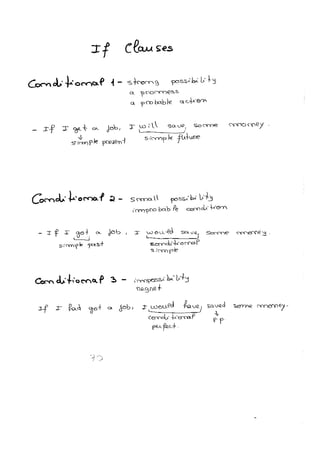 If Clauses
Conditional 1 - strong possibility
a promess
a probable action
- If I get a job, I will save some money.
simple present
simple future
Conditional 2 - small possibility
improbable condition
- If I got a job, I would save some money.
simple past
conditional
simple
Conditional 3 - impossibility
regret
If I had got a job, I would have saved some money.
conditional
perfect.
p.p.